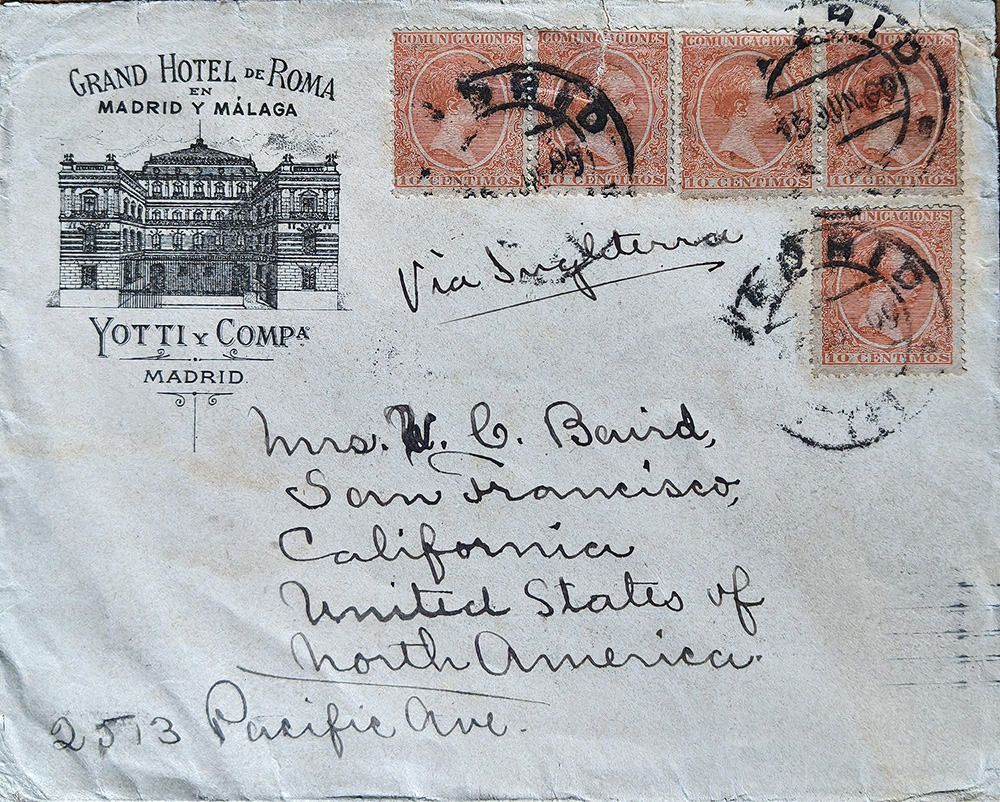 GRAND HOTEL DE ROMA
EN
MADRID Y MÁLAGA
YOTTI Y COMPA
MADRID.
COMUNICACIONES
10 CENTIMOS
COMUNICACIONES
10 CENTIMOS
COMUNICACIONES
10 CENTIMOS
COMUNICACIONES
10 CENTIMOS
COMUNICACIONES
10 CENTIMOS
15 JUN. 
Via Inglterra
Mrs. W. C. Baird,
San Francisco,
California
United States of
North America.
2513 Pacific Ave.